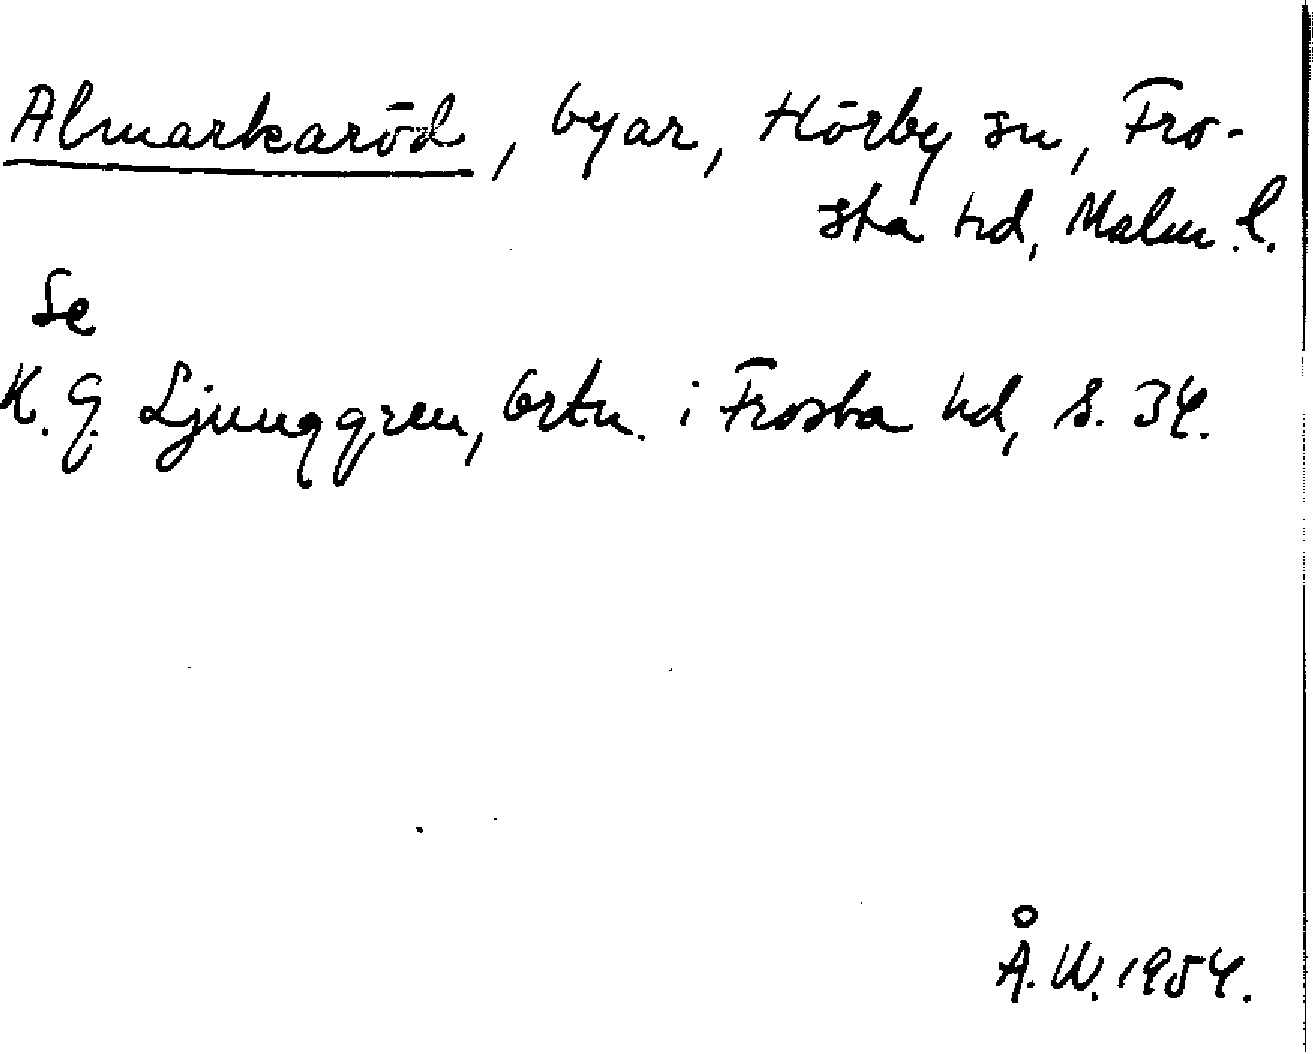 Almarkaröd, byar, Hörby sn, Fro-
sta hd, Malm. l.
Se
K. G. Ljunggren, Ortn. i Frosta hd, s. 34.
Å. W. 1954.